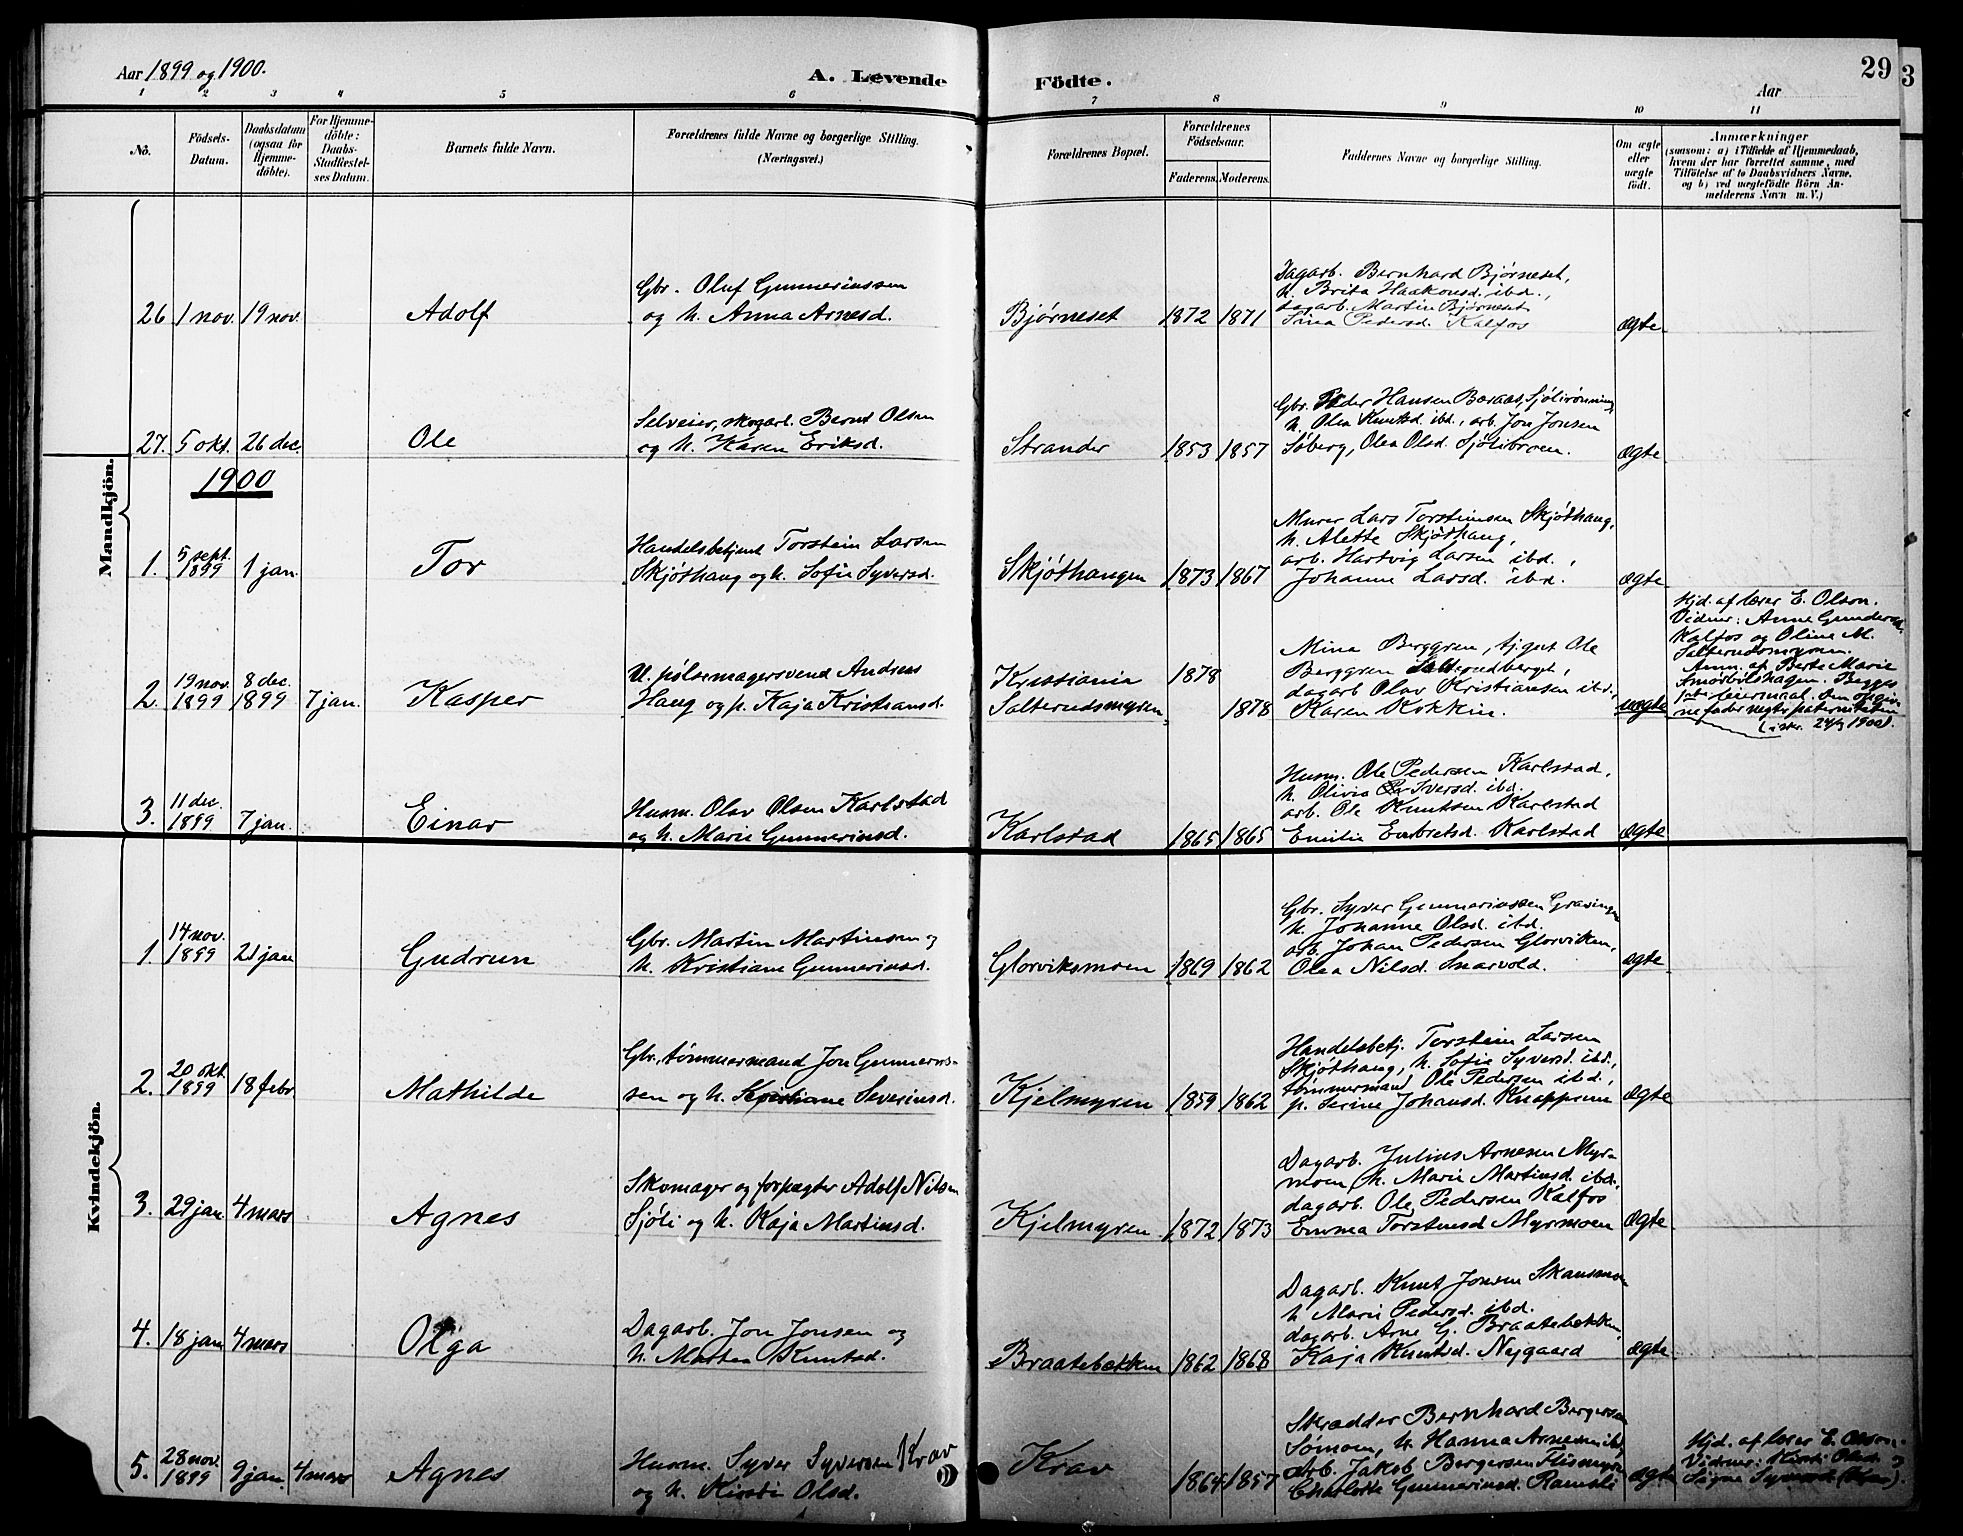 Aar 1899 og 1900.
A. Levende
Födte.
Aar
29
3
1 2 3 4 5 6 7 8 9 10 11
Nô.
Födsels-
Datum.
Daabsdatum
(ogsaa for
Hjemme-
döbte).
For Hjemme-
döbte:
Daabs-
Stadfæstel-
ses Datum.
Barnets fulde Navn.
Forældrenes fulde Navne og borgerlige Stilling.
(Næringsvei.)
Forældrenes Bopæl.
Forældrenes
Födselsaar.
Faderens. Moderens.
Faddernes Navne og borgerlige Stilling.
Om ægte
eller
uægte
født.
Anmærkninger
(saasom: a) i Tilfælde af Hjemmedaab,
hvem der har forrettet samme, med
Tilföielse af to Daabsvidners Navne.
og b) ved uægtefödte Börn An-
melderens Navn m. V.)
Mandkjön.
26 1 nov. 19 nov. Adolf
Gbr. Oluf Gunneriussen
og h. Anna Arnesd.
Bjørneset 1872 1871
Dagarb. Bernhard Bjørneset,
h. Brita Haakonsd. ibd.,
dagarb. Martin Bjørneset
Pedersd. Kalfos
ægte
27. 5 okt. 26 dec. Ole
Selveier, skogarb. Bernt Olsen
og h. Karen Eriksd.
Strander 1853 1857
Gbr. Peder Hansen Sjölirönning,
h. Olea Knutsd. ibd., arb. Jon Jonsen
Søberg, Olea Olsd. Sjölibroen.
ægte
1900
1. 5 sept. 1899 1 jan. Tor
Handelsbetjent Torstein Larsen
Skjøthaug og h. Sofie Syversd.
Skjøthaugen 1873 1867
Murer Lars Torsteinsen Skjøthaug,
h. Alette Skjøthaug,
arb. Hartvig Larsen ibd.,
Johanne Larsd. ibd.
ægte
2. 19 nov. 1899 8 dec. 1899 7 jan. Kasper
U. pølsemagersvend Andreas
Haug og p. Kaja Kristiansd.
Kristiania 1878
Salterudsmyren 1878
Mina Berggren, tjgut Ole
Berggren Salterudberget,
dagarb. Olav Kristiansen ibd.,
Karen Kokkin.
uægte
Hjd. af lærer E. Olson.
Vidner: Anne Gundersd.
Kalfos og Oline M.
Salterudsmyren.
Anm. af Berte Marie
Smørbilshagen. Begges
1ste leiermaal. Den opgiv-
ne fader negter paterniteten
3. 11 dec. 1899 7 jan. Einar
Husm. Olav Olsen Karlstad
og h. Marie Gunneriusd.
Karlstad 1865 1865
Husm. Ole Pedersen Karlstad,
h. Olivia Iversd. ibd.
arb. Ole Knutsen Karlstad
Emilie Embretsd. Karlstad
ægte
Kvindekjön.
1. 14 nov. 1899 21 jan Gudrun
Gbr. Martin Martinsen og
h. Kristiane Gunneriusd.
Glorviksmoen 1869 1862
Gbr. Syver Gunneriussen Gravingen
h. Johanne Olsd. ibd.
arb. Johan Pedersen Glorviken,
Olea Nilsd. Snarvold.
ægte
2. 20 okt. 1899 18 febr. Mathilde
Gbr., tømmermand Jon Gunnerius-
sen og h. Kristiane Severinsd.
Kjelmyren 1859 1862
Handelsbetj. Torstein Larsen
Skjøthaug, h. Sofie Syversd. ibd.,
tømmermand Ole Pedersen ibd.,
p. Serine Johansd. Knapprem
ægte
3. 29 jan 4 mars Agnes
Skomager og forpagter Adolf Nilsen
Sjöli og h. Kaja Martinsd.
Kjelmyren 1872 1873
Dagarb. Julius Arnesen Myr-
moen, h. Marie Martinsd. ibd.,
dagarb. Ole Pedersen Kalfos
Emma Torstensd. Myrmoen
ægte
4. 18 jan 4 mars Olga
Dagarb. Jon Jonsen og
h. Martea Knutsd.
Braatebækken 1862 1868
Dagarb. Knut Jonsen Skansmoen
h. Marie Pedersd. ibd.
dagarb. Arne G. Braatebækken,
Kaja Knutsd. Nygaard
ægte
5. 28 nov. 1899 9 jan. 4 mars Agnes
Husm. Syver Syversen Krav
og h. Kirsti Olsd.
Krav 1864 1857
Skrædder Bernhard Bergersen
Sømoen, h. Hanna Arnesen ibd,
Arb. Jakob Bergersen Flismyren
Charlotte Gunneriusd. Rambli
ægte
Hjd. af lærer E. Olson.
Vidner: Kirsti Olsd. og
Signe Syversd. (Krav).